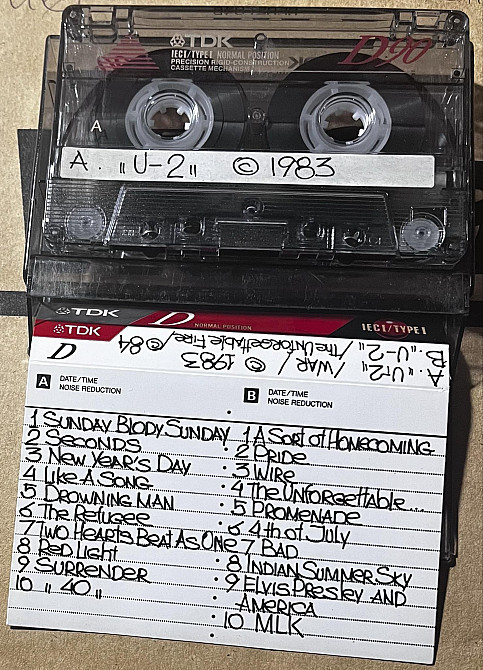 TDK
IECI/TYPE I NORMAL POSITION
PRECISION RIGID-CONSTRUCTION
CASSETTE MECHANISM
D90
A
A. "U-2" © 1983
TDK D NORMAL POSITION IECI/TYPE I
TDK
A. "U-2" /WAR/ © 1983
B. "U-2" /The Unforgettable Fire/ © 84
D
A DATE/TIME
NOISE REDUCTION
B DATE/TIME
NOISE REDUCTION
1 SUNDAY BLODY SUNDAY
2 SECONDS
3 NEW YEAR'S DAY
4 LIKE A SONG
5 DROWNING MAN
6 The Refugee
7 TWO HEARTS BEAT AS ONE
8 Red Light
9 SURRENDER
10 "40"
1 A SORT of HOMECOMING
2 PRIDE
3 WIRE
4 The UNFORGETTABLE...
5 PROMENADE
6 4th of July
7 BAD
8 INDIAN SUMMER SKY
9 ELVIS PRESLEY AND
AMERICA
10 MLK